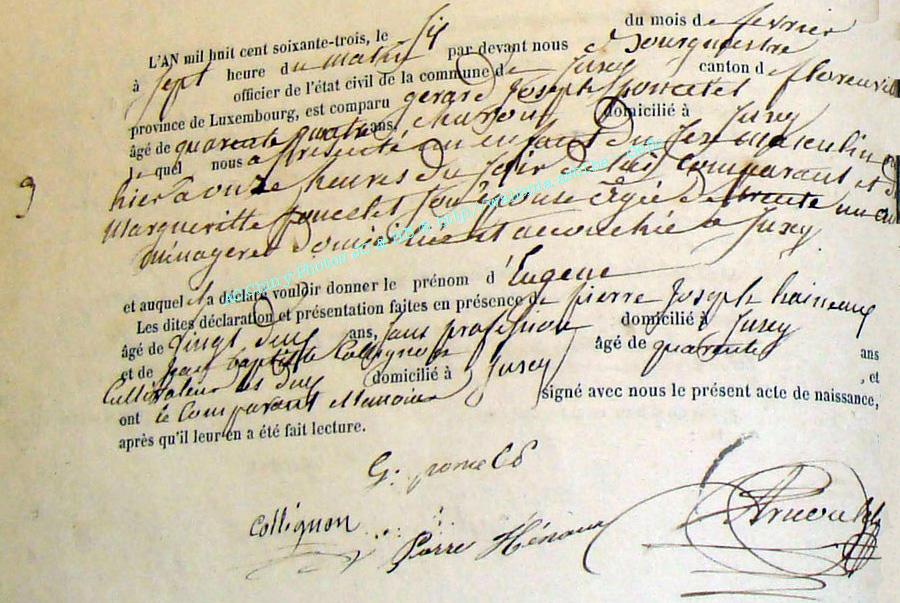 L'AN mil huit cent soixante-trois, le six du mois de fevrier
à Sept heure du matin par devant nous Bourgmestre
officier de l'état civil de la commune de Jusey canton de florenville
province de Luxembourg, est comparu gerard Joseph poncelet
âgé de quarente quatre ans, domicilié à Jusey
lequel nous a presenté un enfant du sexe masculin né
hier à onze heures du soir de lui comparant et de
Margueritte poncelet son épouse agée de trente un ans
ménagere domiciliée et accouchée à Jusey
9
et auquel il a déclaré vouloir donner le prénom d'Eugene
Les dites déclaration et présentation faites en présence de pierre Joseph haineaux
âgé de vingt deux ans, sans profession domicilié à Jusey
et de jean baptiste Collignon âgé de quarente ans
Cultivateur domicilié à Jusey , et
ont le comparant et temoins signé avec nous le présent acte de naissance,
après qu'il leur en a été fait lecture.
G. poncelet
Collignon
Pierre Hénaux